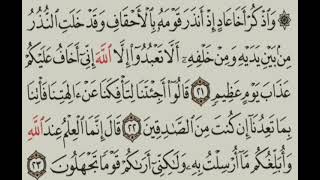 ۞ وَاذْكُرْ أَخَا عَادٍ إِذْ أَنذَرَ قَوْمَهُ بِالْأَحْقَافِ وَقَدْ خَلَتِ النُّذُرُ
مِنْ بَيْنِ يَدَيْهِ وَمِنْ خَلْفِهِ أَلَّا تَعْبُدُوا إِلَّا اللَّهَ إِنِّي أَخَافُ عَلَيْكُمْ
عَذَابَ يَوْمٍ عَظِيمٍ ٢١ قَالُوا أَجِئْتَنَا لِتَأْفِكَنَا عَنْ آلِهَتِنَا فَأْتِنَا
بِمَا تَعِدُنَا إِن كُنتَ مِنَ الصَّادِقِينَ ٢٢ قَالَ إِنَّمَا الْعِلْمُ عِندَ اللَّهِ
وَأُبَلِّغُكُم مَّا أُرْسِلْتُ بِهِ وَلَٰكِنِّي أَرَاكُمْ قَوْمًا تَجْهَلُونَ ٢٣